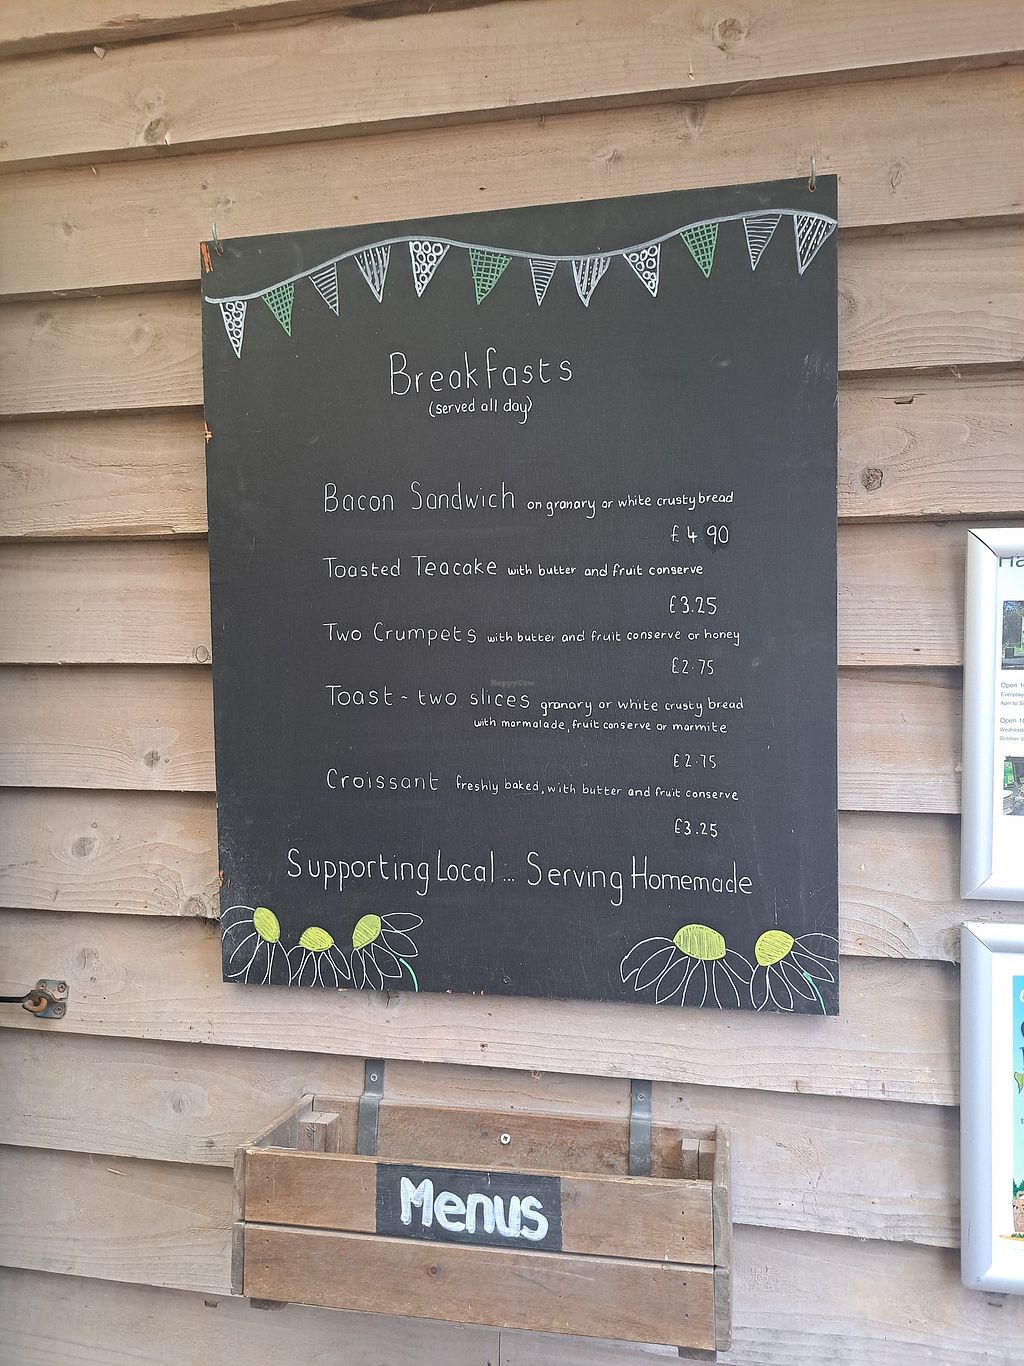 Breakfasts
(served all day)
Bacon Sandwich on granary or white crusty bread
£4.90
Toasted Teacake with butter and fruit conserve
£3.25
Two Crumpets with butter and fruit conserve or honey
£2.75
HappyCow
Toast - two slices granary or white crusty bread
with marmalade, fruit conserve or marmite
£2.75
Croissant freshly baked, with butter and fruit conserve
£3.25
Supporting Local ... Serving Homemade
Menus
Ha
Open 1
Everyday
April to S
Open 1
Wednesda
October t